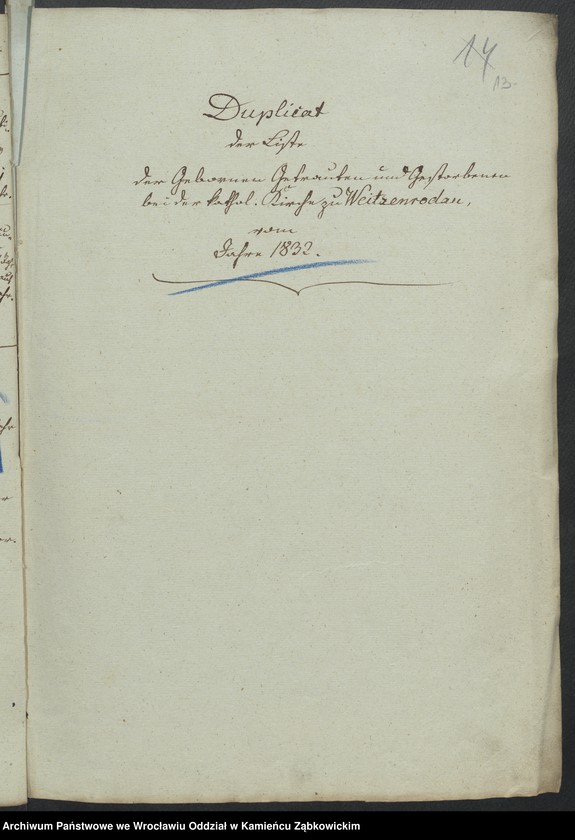 14
13.
Duplicat
der Liste
der Gebornen Getrauten und Gestorbenen
bei der kathol. Kirche zu Weitzenrodau,
vom
Jahre 1832.
Archiwum Państwowe we Wrocławiu Oddział w Kamieńcu Ząbkowickim